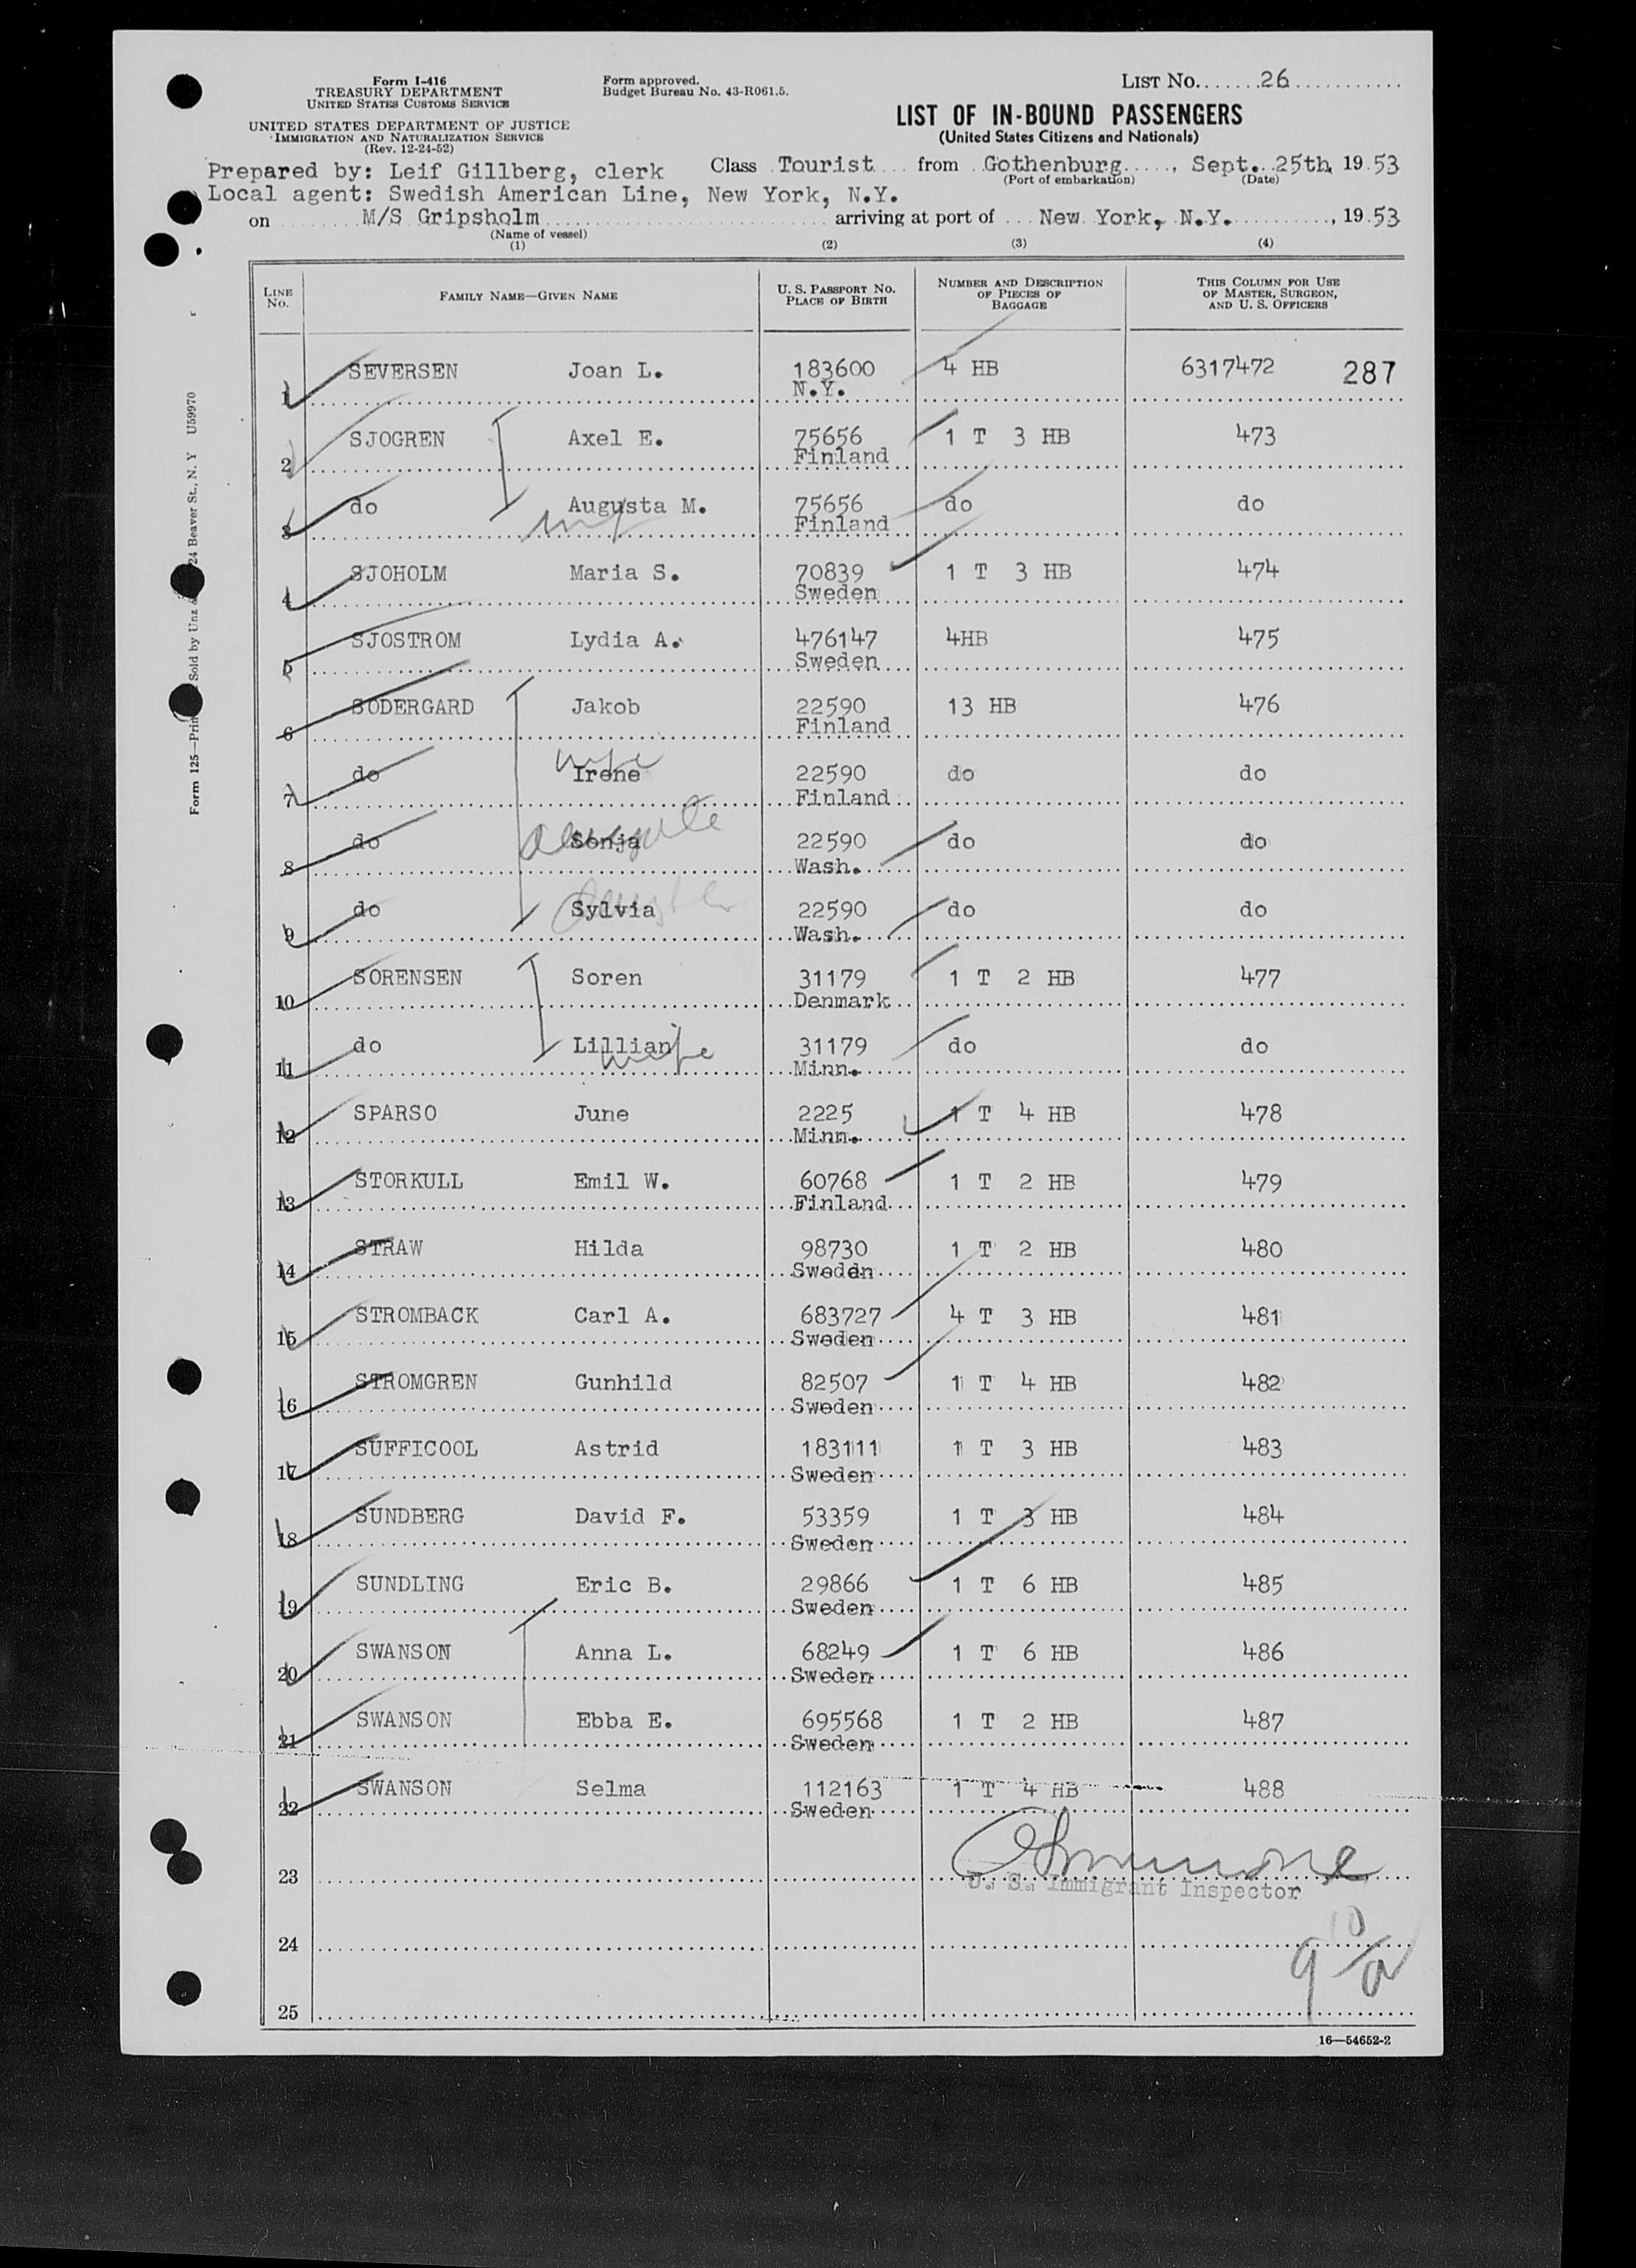 Form I-416
TREASURY DEPARTMENT
UNITED STATES CUSTOMS SERVICE
UNITED STATES DEPARTMENT OF JUSTICE
IMMIGRATION AND NATURALIZATION SERVICE
(Rev. 12-24-52)
Form approved.
Budget Bureau No. 43-R061.5.
LIST NO. 26
LIST OF IN-BOUND PASSENGERS
(United States Citizens and Nationals)
Prepared by: Leif Gillberg, clerk Class Tourist from Gothenburg, Sept. 25th, 1953
(Port of embarkation) (Date)
Local agent: Swedish American Line, New York, N.Y.
on M/S Gripsholm arriving at port of New York, N.Y., 1953
(Name of vessel)
(1) (2) (3) (4)
LINE NO. FAMILY NAME—GIVEN NAME U. S. PASSPORT NO. PLACE OF BIRTH NUMBER AND DESCRIPTION OF PIECES OF BAGGAGE THIS COLUMN FOR USE OF MASTER, SURGEON, AND U. S. OFFICERS
1 SEVERSEN Joan L. 183600 4 HB 6317472 287
N.Y.
2 SJOGREN Axel E. 75656 1 T 3 HB 473
Finland
3 do Augusta M. 75656 do do
Finland
4 SJOHOLM Maria S. 70839 1 T 3 HB 474
Sweden
5 SJOSTROM Lydia A. 476147 4HB 475
Sweden
6 SODERGARD Jakob 22590 13 HB 476
Finland
wife
7 do Irene 22590 do do
Finland
8 do Sonja 22590 do do
Wash.
9 do Sylvia 22590 do do
Wash.
10 SORENSEN Soren 31179 1 T 2 HB 477
Denmark
11 do Lillian 31179 do do
wife
Minn.
12 SPARSO June 2225 1 T 4 HB 478
Minn.
13 STORKULL Emil W. 60768 1 T 2 HB 479
Finland
14 STRAW Hilda 98730 1 T 2 HB 480
Sweden
15 STROMBACK Carl A. 683727 4 T 3 HB 481
Sweden
16 STROMGREN Gunhild 82507 1 T 4 HB 482
Sweden
17 SUFFICOOL Astrid 183111 1 T 3 HB 483
Sweden
18 SUNDBERG David F. 53359 1 T 3 HB 484
Sweden
19 SUNDLING Eric B. 29866 1 T 6 HB 485
Sweden
20 SWANSON Anna L. 68249 1 T 6 HB 486
Sweden
21 SWANSON Ebba E. 695568 1 T 2 HB 487
Sweden
22 SWANSON Selma 112163 1 T 4 HB 488
Sweden
23
U. S. Immigrant Inspector
24
25
16—54652-2
Form 125—Prin Sold by Unz 24 Beaver St., N. Y U59970